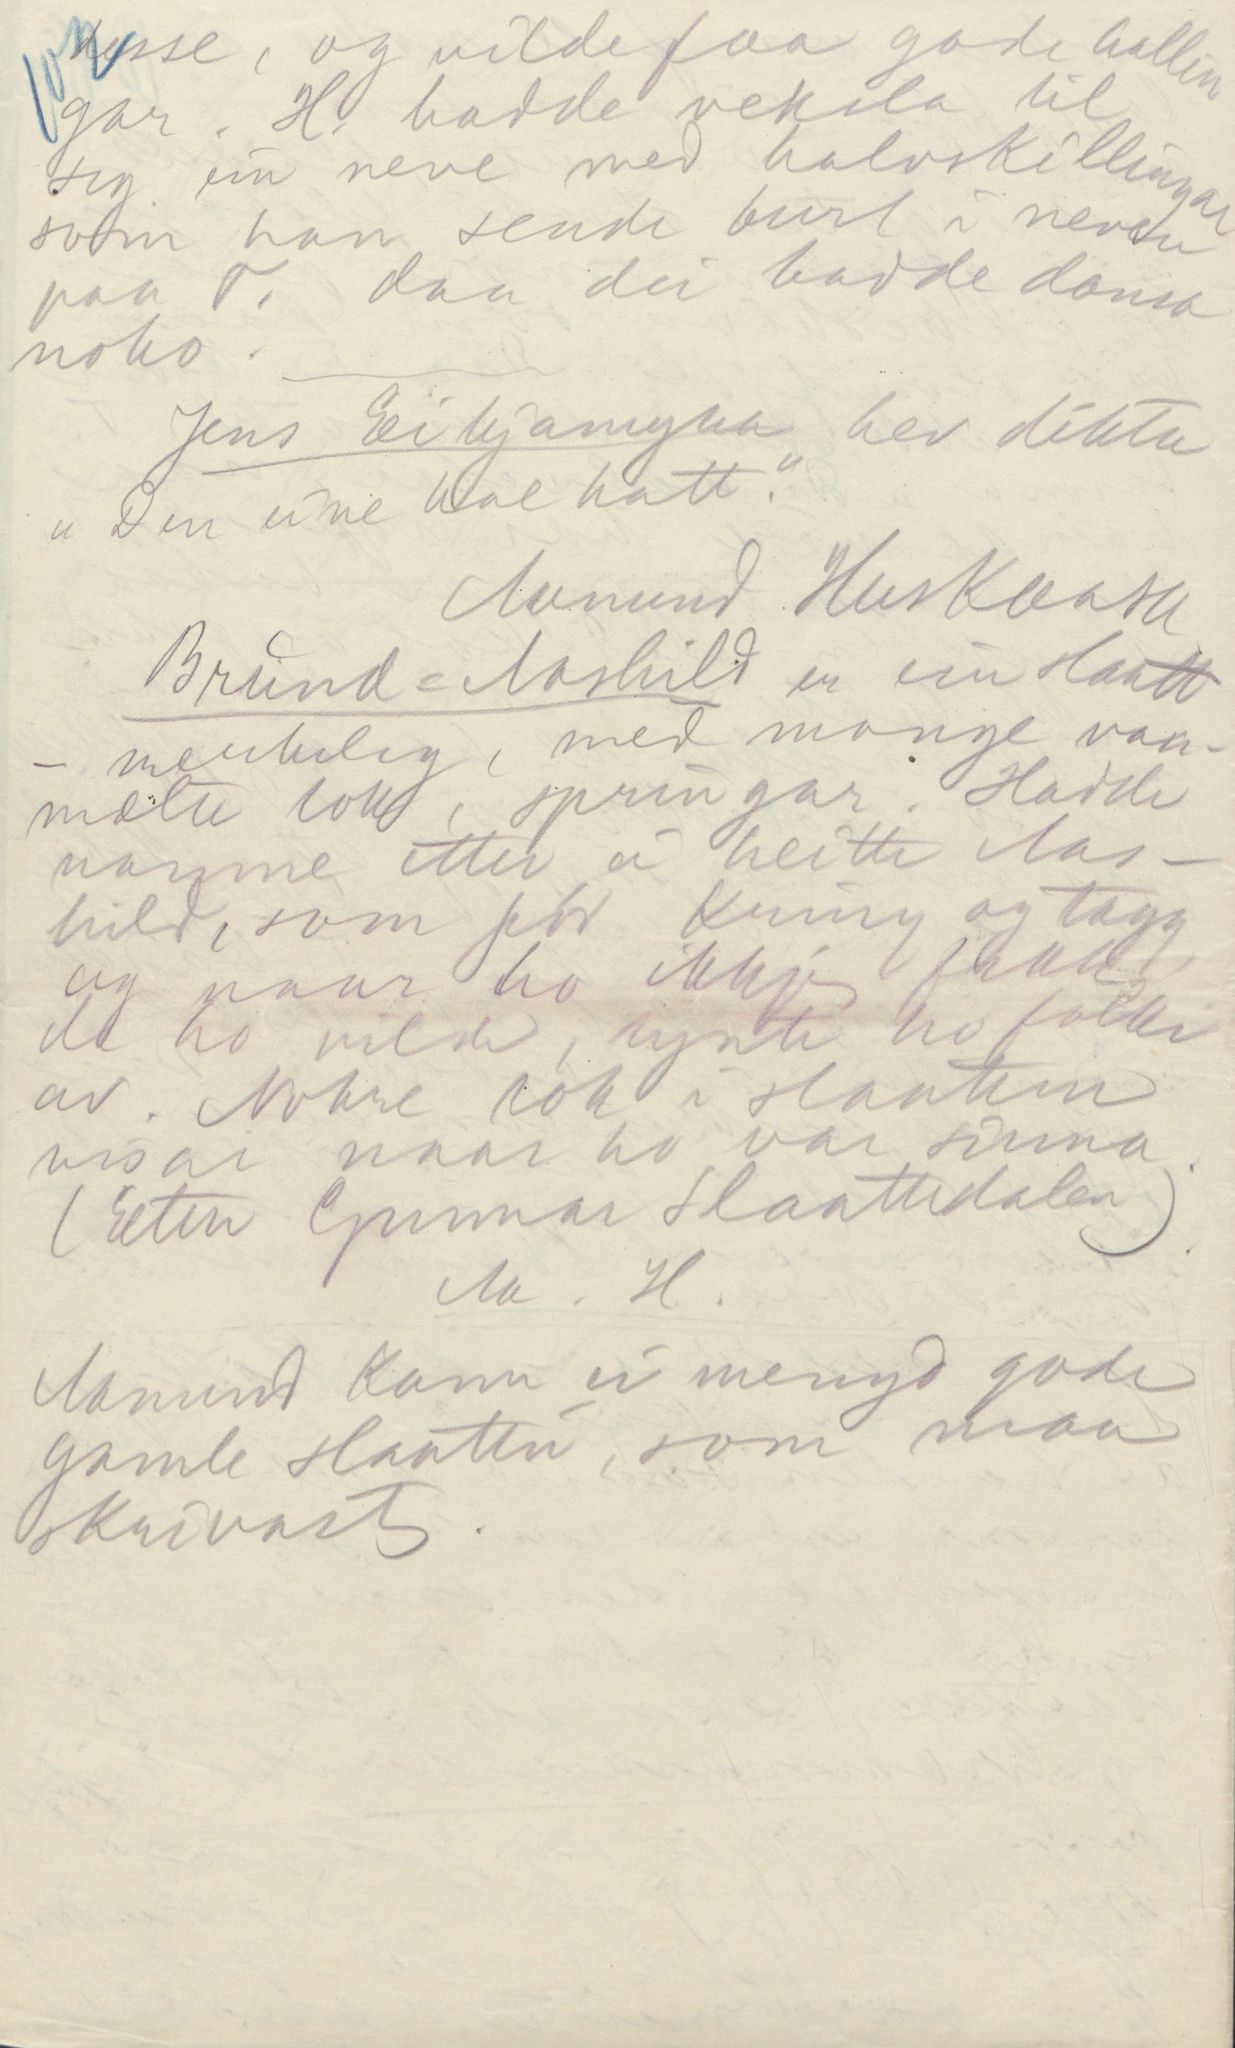 desse, og vilde faa gode hallin
gar. H. hadde veksla til
seg ein neve med halvskillingar
som han sende burt i neven
paa T. daa dei hadde dansa
noko.
Jens Eikjamyra hev dikta
"Den eine hae hatt."
Aamund Huskaasa
Brund=Aashild er ein slaatt
- merkeleg, med mange van-
mælte tok, springar. Hadde
namne etter ei heitte Aas-
hild, som for kring og tagg
og naar ho ikkje fekk
de ho vilde, rynte ho folki
av. Nokre tok i slaatten
visar naar ho var sinna.
(Etter Gunnar Slaattedalen).
Aa. H.
Aamund kann ei mengd gode
gamle slaatter, som maa
skrivast.